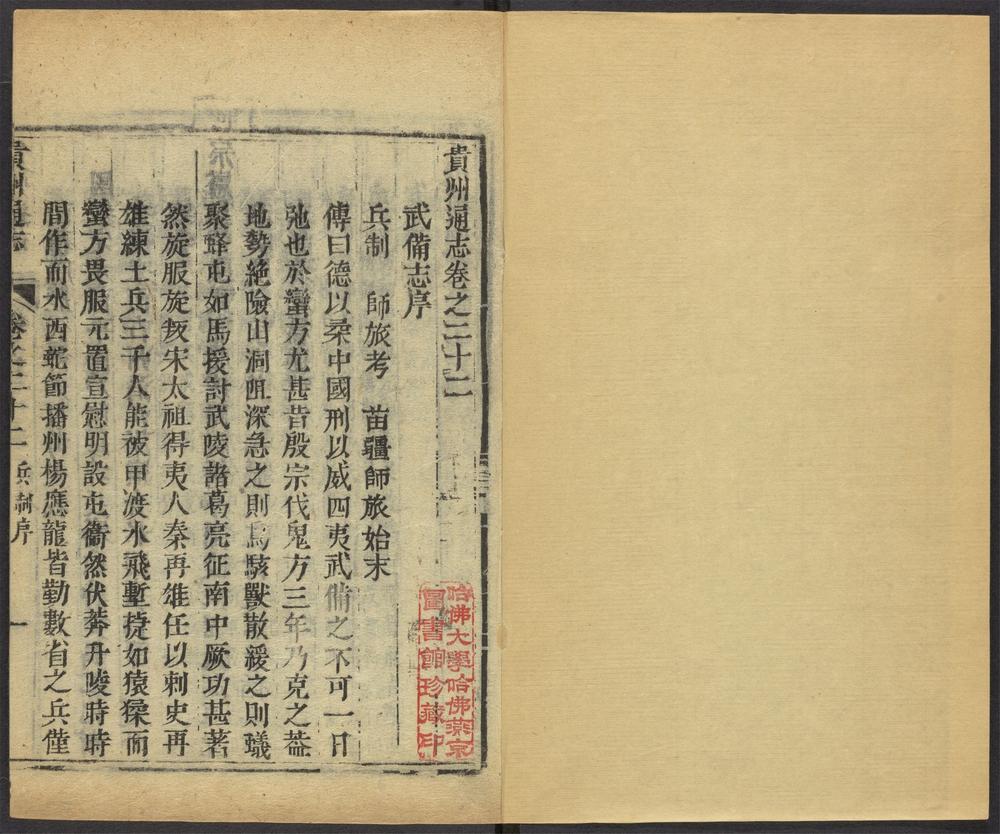 貴州通志卷之二十二
武備志序
兵制　師旅考　苗疆師旅始末
傳曰德以柔中國刑以威四夷武備之不可一日
弛也於蠻方尤甚昔殷宗伐鬼方三年乃克之蓋
地勢絶險山洞岨深急之則鳥駭獸散緩之則蟻
聚蜂屯如馬援討武陵諸葛亮征南中厥功甚著
然旋服旋叛宋太祖得夷人秦再雄任以刺史再
雄練土兵三千人能被甲渡水飛壍捷如猿猱而
蠻方畏服元置宣慰明設屯衞然伏莽升陵時時
間作而水西蛇節播州楊應龍皆勤數省之兵僅
貴州通志
卷之二十二　兵制序　一
哈佛大學哈佛燕京
圖書館珍藏印